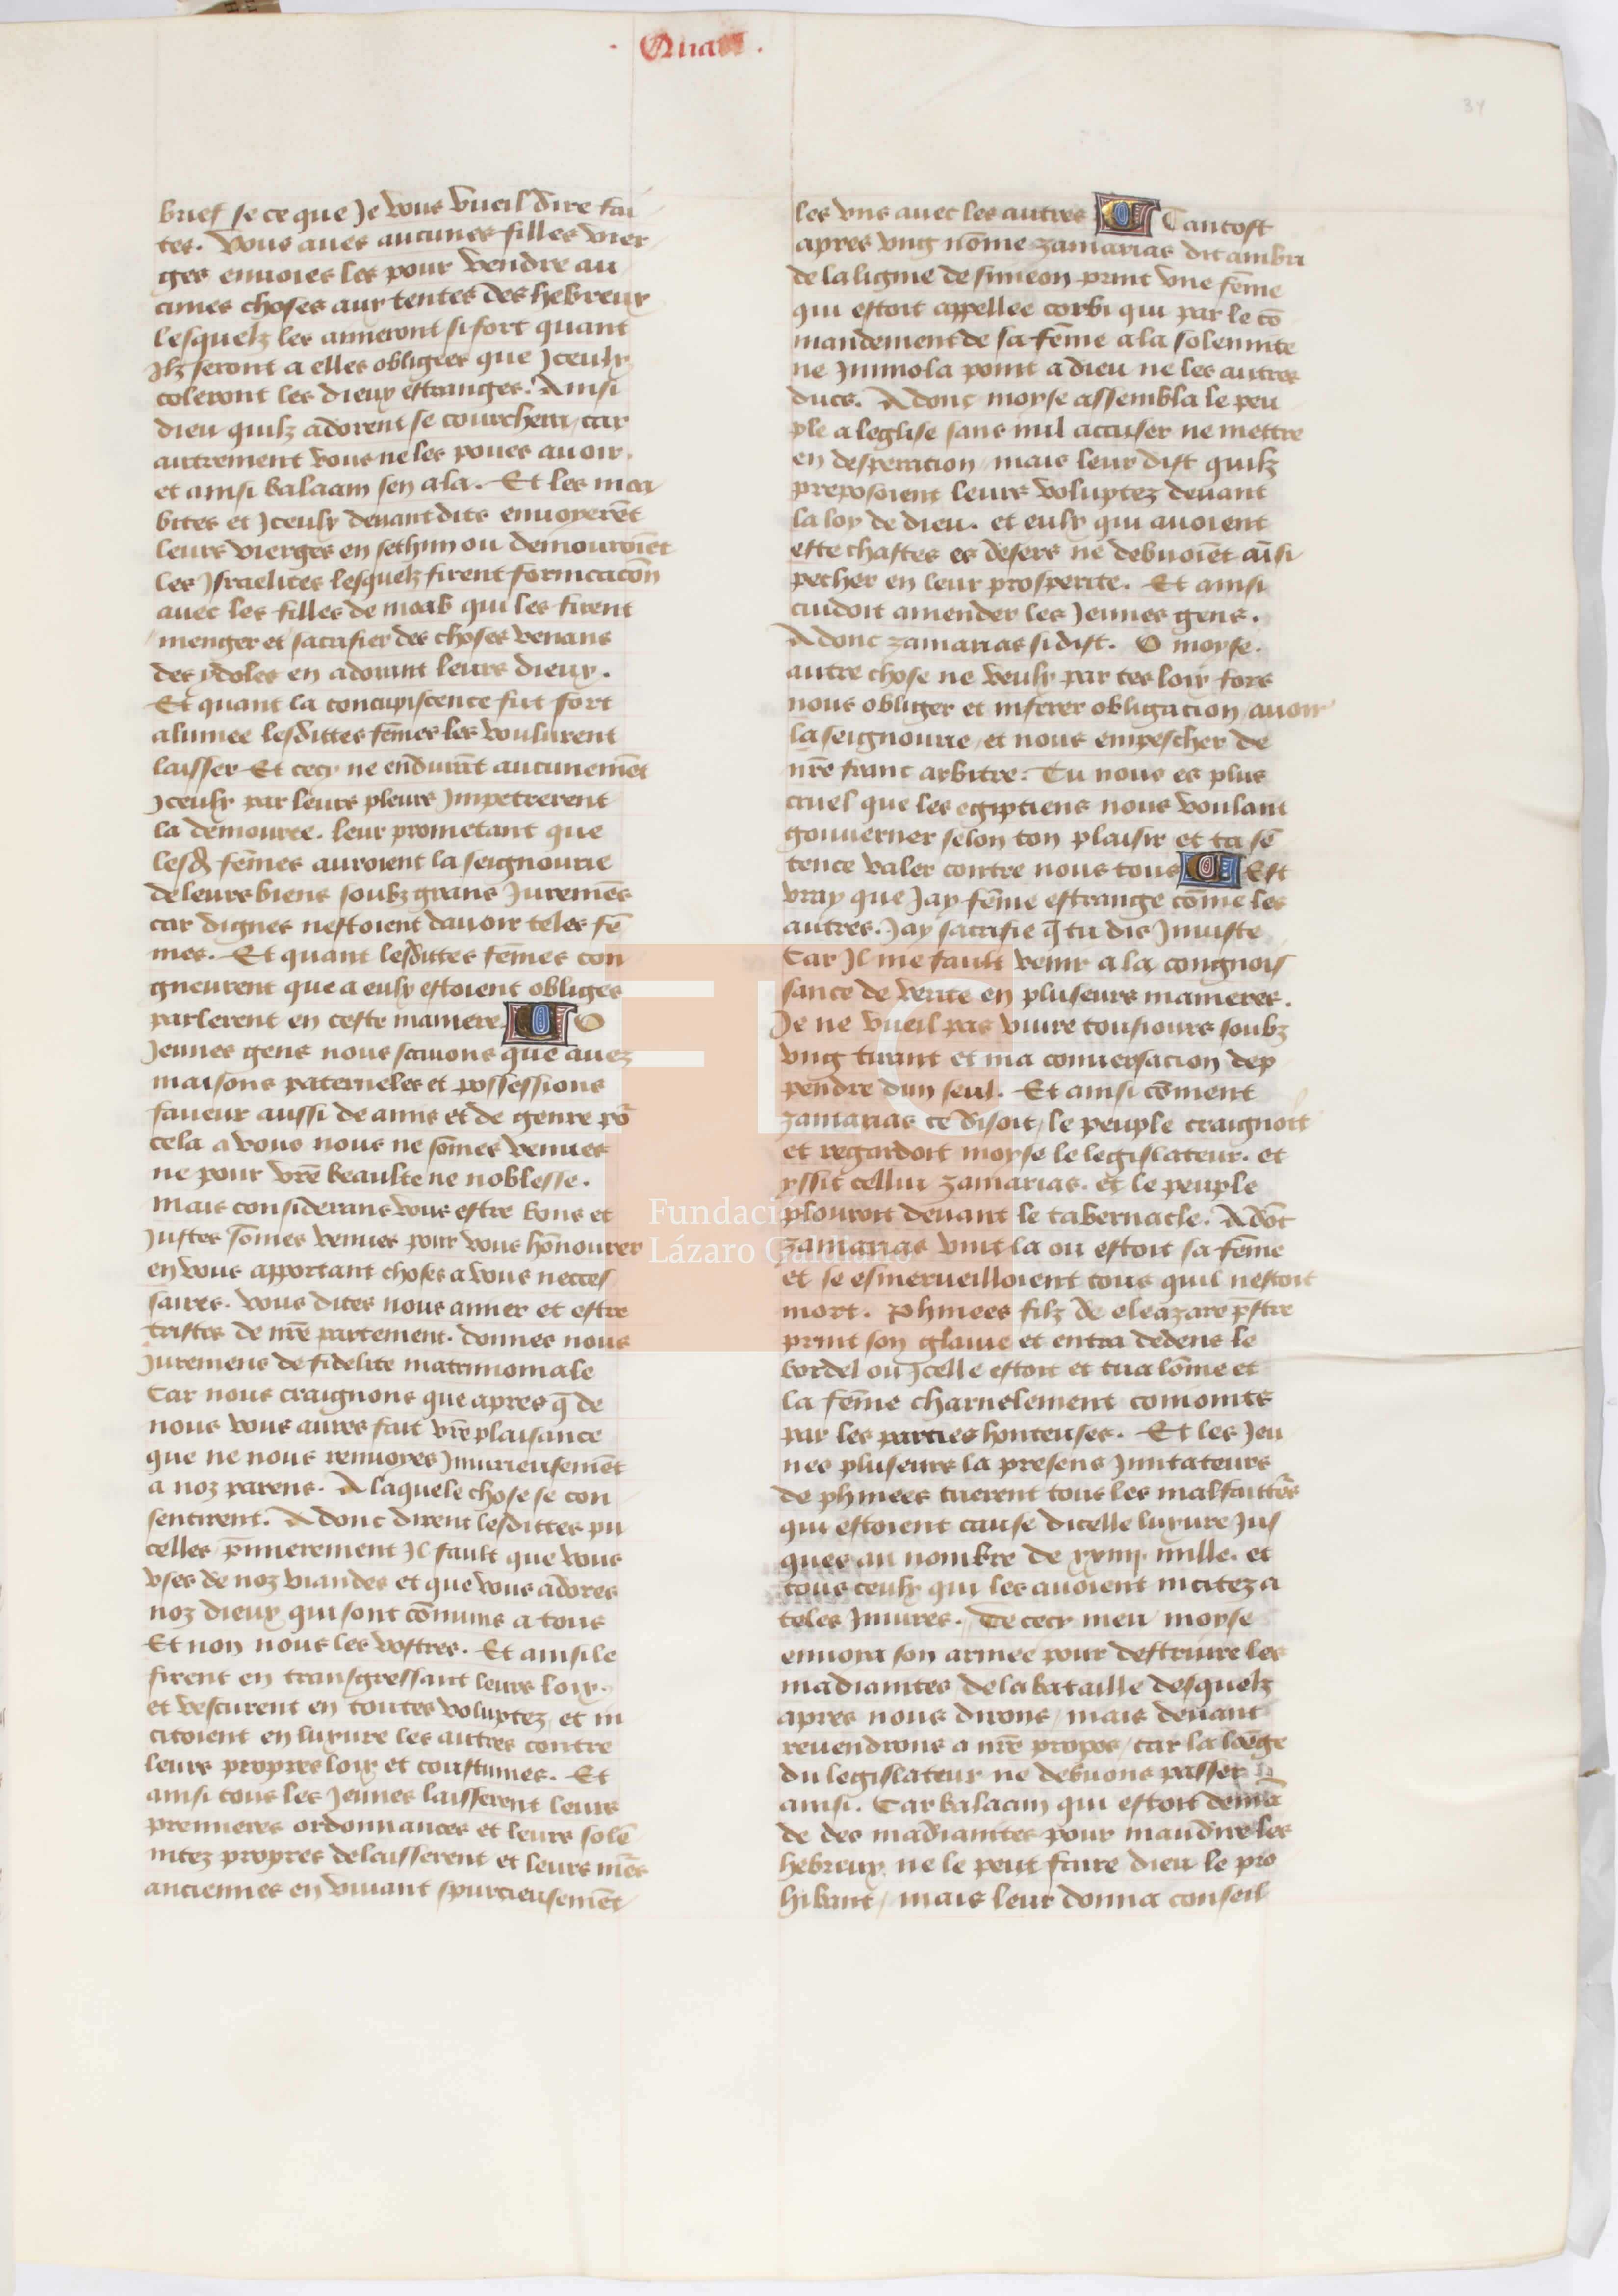 Quart.
34
brief se ce que Je vous vueil dire fai
tes. Vous aues aucunes filles vier
ges enuoies les pour vendre au
cunes choses aux tentes des hebreux
lesquelz les aimeront si fort quant
Ilz seront a elles obligees que Jceulx
coleront les dieux estranges. Ainsi
dieu quilz adorent se courchera, car
autrement vous ne les poues auoir.
et ainsi balaam sen ala. Et les moa
bites et Jceulx deuant dits enuoyerēt
leurs vierges en sethim ou demouroiēt
les Jsraelites lesquelz firent fornicacōn
auec les filles de moab qui les firent
menger et sacrifier des choses venans
des ydoles en adorant leurs dieux.
Et quant la concupiscence fut fort
alumee lesdittes fēmes les voulurent
laisser Et cecy ne endurāt aucunemēt
Jceulx par leurs pleurs Jmpetrerent
la demouree. leur prometant que
lesd fēmes auroient la seignourie
de leurs biens soubz grans Juremēs
car dignes nestoient dauoir teles fē
mes. Et quant lesdittes fēmes con
gneurent que a eulx estoient obliges
parlerent en ceste maniere O
Jeunes gens nous scauons que auez
maisons paterneles et possessions
faueur aussi de amis et de genre po
cela a vous nous ne sōmes venues
ne pour vrē beaulte ne noblesse.
mais considerans vous estre bons et
Justes sōmes venues pour vous hōnourer
en vous apportant choses a vous necces
saires. vous dites nous aimer et estre
tristes de nrē partement. donnes nous
Juremens de fidelite matrimoniale
Car nous craignons que apres q̄ de
nous vous aures fait vrē plaisance
que ne nous renuoyes Jniurieusemēt
a noz parens. A laquele chose se con
sentirent. Adonc dirent lesdittes pu
celles p̄mierement Jl fault que vous
vses de noz viandes et que vous adores
noz dieux qui sont cōmuns a tous
Et non nous les vostres. Et ainsi le
firent en transgressant leurs loix.
et vescurent en toutes voluptez et in
citoient en luxure les autres contre
leurs propres loix et coustumes. Et
ainsi tous les Jeunes laisserent leurs
premieres ordonnances et leurs solē
nitez propres delaisserent et leurs mēs
anciennes en viuant spurcieusemēt
les vns auec les autres Tantost
apres vng nōme zamarias dit ambri
de la ligne de simeon print vne fēme
qui estoit appellee corbi qui par le cō
mandement de sa fēme a la solennite
ne Jmmola point a dieu ne les autres
ducs. Adonc moyse assembla le peu
ple a leglise sans nul accuser ne mettre
en desperacion, mais leur dist quilz
preposoient leurs voluptez deuant
la loy de dieu. et eulx qui auoient
este chastes es desers ne debuoiēt aīsi
pecher en leur prosperite. Et ainsi
cuidoit amender les Jeunes gens.
Adonc zamarias si dist. O moyse.
autre chose ne veulx par tes loix fors
nous obliger et inferer obligacion, auoir
la seignourie, et nous empescher de
nrē franc arbitre. Tu nous es plus
cruel que les egiptiens nous voulant
gouuerner selon ton plaisir et ta sē
tence valer contre nous tous Est
vray que Jay fēme estrange cōme les
autres. Jay sacrifie q̄ tu dis Jniuste
Car Jl me fault venir a la congnois
sance de verite en pluseurs manieres.
Je ne vueil pas viure tousiours soubz
vng tirant et ma conuersacion dep
pendre dun seul. Et ainsi cōment
zamarias ce disoit, le peuple craignoit
et regardoit moyse le legislateur. et
yssit cellui zamarias. et le peuple
plouroit deuant le tabernacle. Adōc
zamarias vint la ou estoit sa fēme
et se esmerueilloient tous quil nestoit
mort. Phinees filz de eleazare p̄stre
print son glaiue et entra dedens le
bordel ou Jcelle estoit et tua lōme et
la fēme charnelement conioints
par les parties honteuses. Et les Jeu
nes pluseurs la presens Jmitateurs
de phinees tuerent tous les malfaittēs
qui estoient cause dicelle luxure Jus
ques au nombre de xxiiij. mille. et
tous ceulx qui les auoient incitez a
teles Jniures. De cecy meu moyse
enuoya son armee pour destruire les
madianites de la bataille desquelz
apres nous dirons, mais deuant
reuendrons a nrē propos, car la loēge
du legislateur ne debuons passer
ainsi. Car balaam qui estoit demā
de des madianites pour maudire les
hebreux ne le peut faire dieu le pro
hibant, mais leur donna conseil
Fundación
Lázaro Galdiano